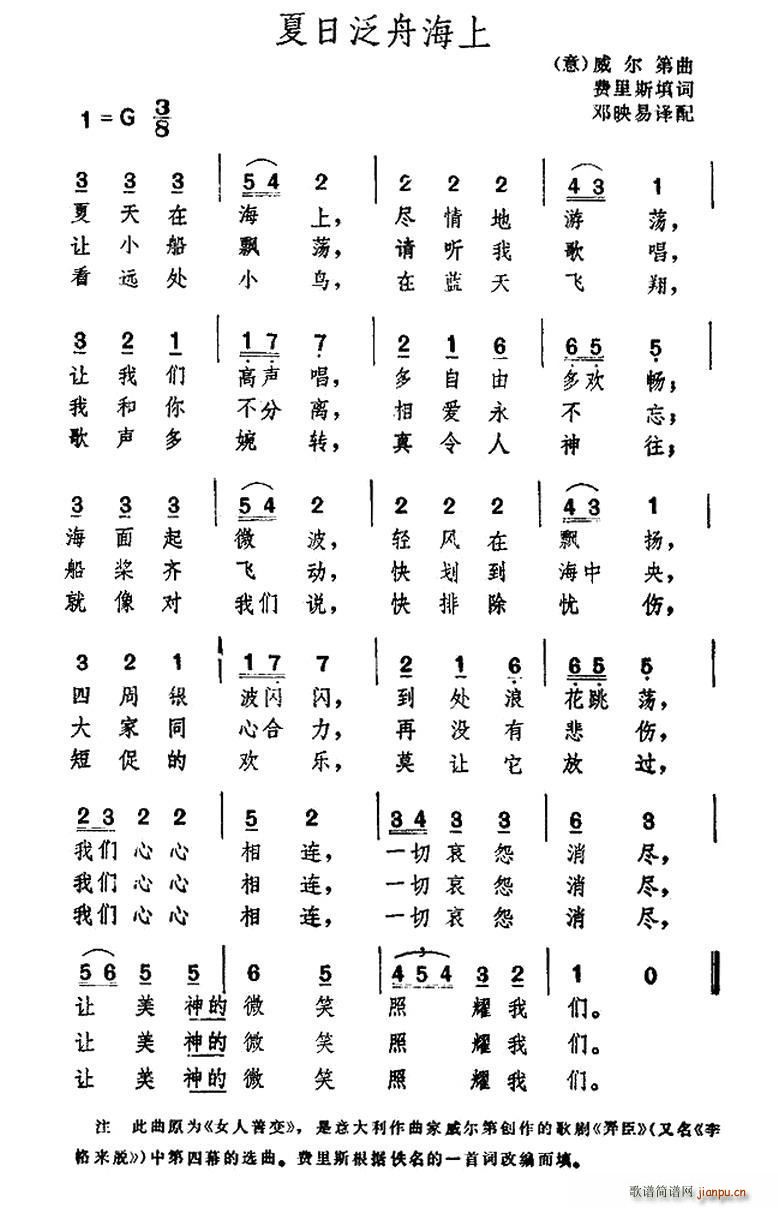 夏日泛舟海上
(意)威尔第曲
费里斯填词
邓映易译配
1=G 3/8
3 3 3 | 5 4 2 | 2 2 2 | 4 3 1 |
夏天在 海上, 尽情地 游荡,
让小船 飘荡, 请听我 歌唱,
看远处 小鸟, 在蓝天 飞翔,
3 2 1 | 1 7 7 | 2 1 6 | 6 5 5 |
让我们 高声唱, 多自由 多欢畅;
我和你 不分离, 相爱永 不忘;
歌声多 婉转, 真令人 神往;
3 3 3 | 5 4 2 | 2 2 2 | 4 3 1 |
海面起 微波, 轻风在 飘扬,
船桨齐 飞动, 快划到 海中央,
就像对 我们说, 快排除 忧伤,
3 2 1 | 1 7 7 | 2 1 6 | 6 5 5 |
四周银 波闪闪, 到处浪 花跳荡,
大家同 心合力, 再没有 悲伤,
短促的 欢乐, 莫让它 放过,
2 3 2 2 | 5 2 | 3 4 3 3 | 6 3 |
我们心心 相连, 一切哀怨 消尽,
我们心心 相连, 一切哀怨 消尽,
我们心心 相连, 一切哀怨 消尽,
5 6 5 5 | 6 5 | 4 5 4 3 2 | 1 0 ‖
让美神的 微笑 照耀我 们。
让美神的 微笑 照耀我 们。
让美神的 微笑 照耀我 们。
注 此曲原为《女人善变》,是意大利作曲家威尔第创作的歌剧《弄臣》(又名《李
格来脱》)中第四幕的选曲。费里斯根据佚名的一首词改编而填。
歌谱简谱网 jianpu.cn